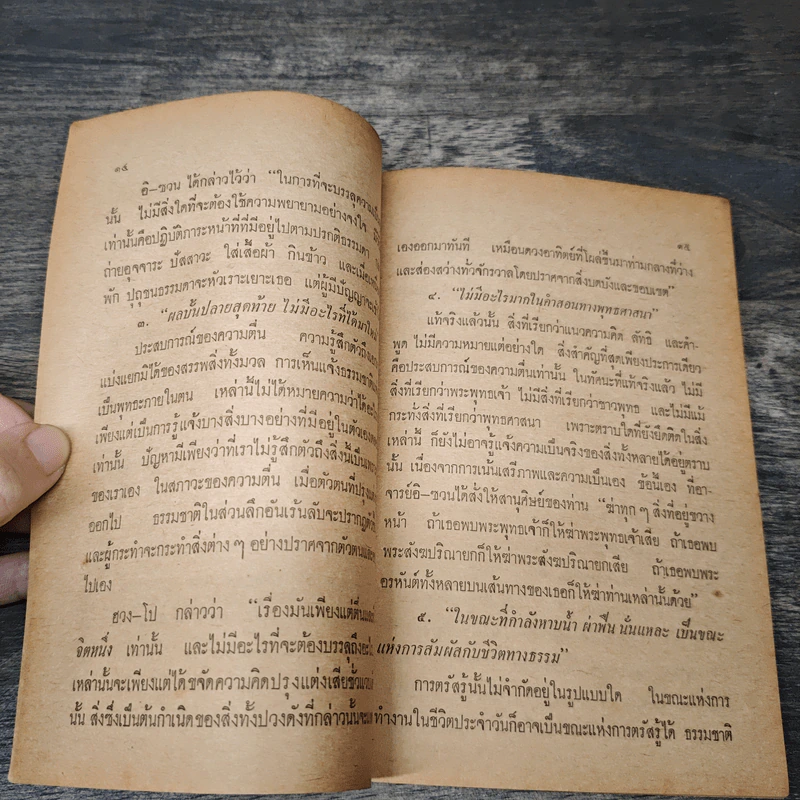 ๑๔
อิ–ชวน ได้กล่าวไว้ว่า “ในการที่จะบรรลุความ
นั้น ไม่มีสิ่งใดที่จะต้องใช้ความพยายามอย่างจงใจ
เท่านั้นคือปฏิบัติภาระหน้าที่ที่มีอยู่ไปตามปรกติธรรมดา
ถ่ายอุจจาระ ปัสสาวะ ใส่เสื้อผ้า กินข้าว และเมื่อ
พัก ปุถุชนธรรมดาจะหัวเราะเยาะเธอ แต่ผู้มีปัญญาจะ
๓. “ผลบั้นปลายสุดท้าย ไม่มีอะไรที่ได้มาใหม่
ประสบการณ์ของความตื่น ความรู้สึกตัวถึง
แบ่งแยกมิได้ของสรรพสิ่งทั้งมวล การเห็นแจ้งธรรมชาติ
เป็นพุทธะภายในตน เหล่านี้ไม่ได้หมายความว่าได้
เพียงแต่เป็นการรู้แจ้งบางสิ่งบางอย่างที่มีอยู่ในตัวเอง
เท่านั้น ปัญหามีเพียงว่าที่เราไม่รู้สึกตัวถึงสิ่งนี้เป็น
ของเราเอง ในสภาวะของความตื่น เมื่อตัวตนที่ปรุง
ออกไป ธรรมชาติในส่วนลึกอันเร้นลับจะปรากฏ
และผู้กระทำจะกระทำสิ่งต่าง ๆ อย่างปราศจากตัวตน
ไปเอง
ฮวง–โป กล่าวว่า “เรื่องมันเพียงแต่ตื่น
จิตหนึ่ง เท่านั้น และไม่มีอะไรที่จะต้องบรรลุถึง
เหล่านั้นจะเพียงแต่ได้ขจัดความคิดปรุงแต่งเสียชั่ว
นั้น สิ่งซึ่งเป็นต้นกำเนิดของสิ่งทั้งปวงดังที่กล่าวนั้นจะ
๑๕
เองออกมาทันที เหมือนดวงอาทิตย์ที่โผล่ขึ้นมาท่ามกลางที่ว่าง
และส่องสว่างทั่วจักรวาลโดยปราศจากสิ่งบดบังและขอบเขต”
๔. “ไม่มีอะไรมากในคำสอนทางพุทธศาสนา”
แท้จริงแล้วนั้น สิ่งที่เรียกว่าแนวความคิด ลัทธิ และคำ-
พูด ไม่มีความหมายแต่อย่างใด สิ่งสำคัญที่สุดเพียงประการเดียว
คือประสบการณ์ของความตื่นเท่านั้น ในทัศนะที่แท้จริงแล้ว ไม่มี
สิ่งที่เรียกว่าพระพุทธเจ้า ไม่มีสิ่งที่เรียกว่าชาวพุทธ และไม่มีแม้
กระทั่งสิ่งที่เรียกว่าพุทธศาสนา เพราะตราบใดที่ยังยึดติดในสิ่ง
เหล่านี้ ก็ยังไม่อาจรู้แจ้งความเป็นจริงของสิ่งทั้งหลายได้อยู่ตราบ
นั้น เนื่องจากการเน้นเสรีภาพและความเป็นเอง ข้อนี้เอง ที่อา-
จารย์อิ–ชวนได้สั่งให้สานุศิษย์ของท่าน “ฆ่าทุก ๆ สิ่งที่อยู่ขวาง
หน้า ถ้าเธอพบพระพุทธเจ้าก็ให้ฆ่าพระพุทธเจ้าเสีย ถ้าเธอพบ
พระสังฆปริณายกก็ให้ฆ่าพระสังฆปริณายกเสีย ถ้าเธอพบพระ
อรหันต์ทั้งหลายบนเส้นทางของเธอก็ให้ฆ่าท่านเหล่านั้นด้วย”
๕. “ในขณะที่กำลังหาบน้ำ ผ่าฟืน นั่นแหละ เป็นขณะ
แห่งการสัมผัสกับชีวิตทางธรรม”
การตรัสรู้นั้นไม่จำกัดอยู่ในรูปแบบใด ในขณะแห่งการ
ทำงานในชีวิตประจำวันก็อาจเป็นขณะแห่งการตรัสรู้ได้ ธรรมชาติ